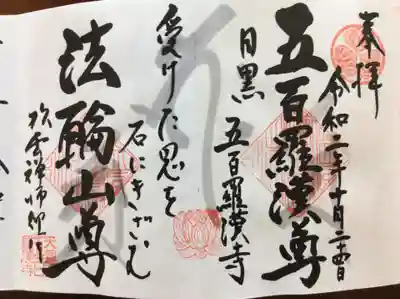 奉拝
令和二年十月二十四日
五百羅漢尊
目黒 五百羅漢寺
受けた恩を
石にきざむ
法輪山尊
松雲禅師